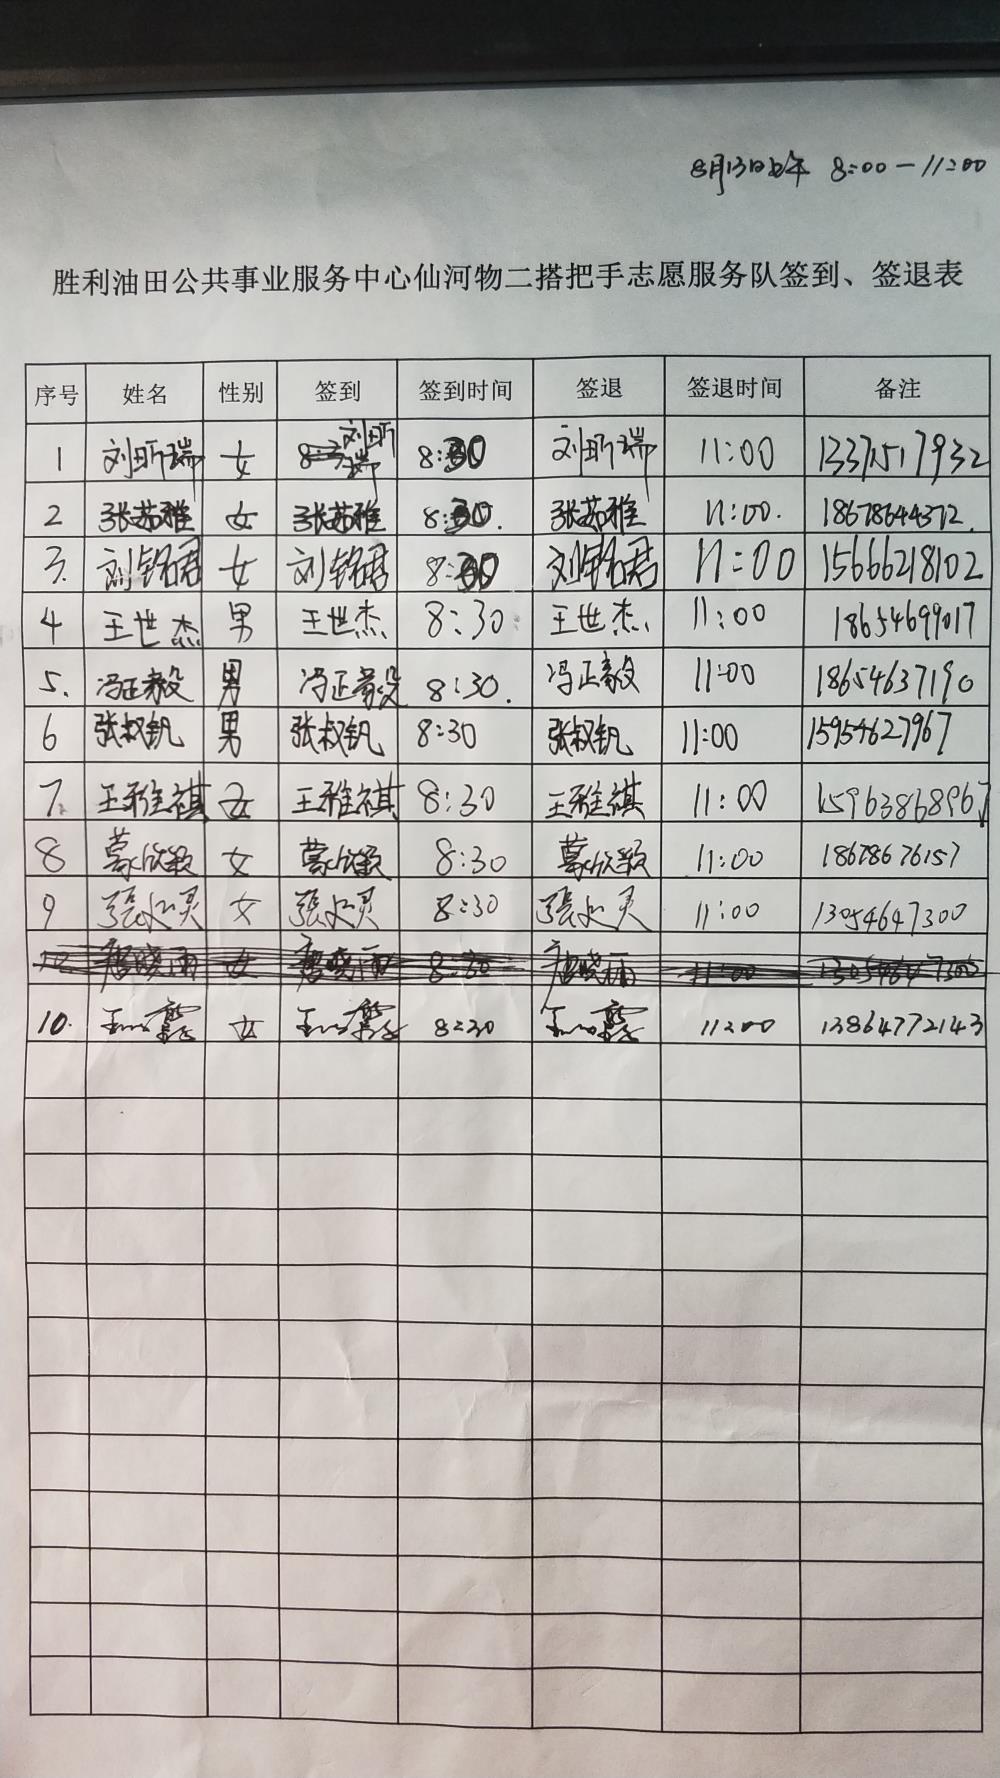 8月13日上午 8:00—11:00
胜利油田公共事业服务中心仙河物二搭把手志愿服务队签到、签退表
序号 姓名 性别 签到 签到时间 签退 签退时间 备注
1 刘昕瑞 女 刘昕瑞 8:30 刘昕瑞 11:00 13371517932
2 张茹雅 女 张茹雅 8:30. 张茹雅 11:00. 18678644372.
3. 刘铭君 女 刘铭君 8:30 刘铭君 11:00 15666218102
4 王世杰 男 王世杰 8:30 王世杰 11:00 18654699017
5. 冯正毅 男 冯正毅 8:30. 冯正毅 11:00 18654637190
6 张叔钒 男 张叔钒 8:30 张叔钒 11:00 15954627967
7. 王雅祺 女 王雅祺 8:30 王雅祺 11:00 15963868967
8 女 8:30 11:00 18678676157
9 女 8:30 11:00 13054647300
女 8:30 11:00
10. 女 8:30 11:00 13864772143